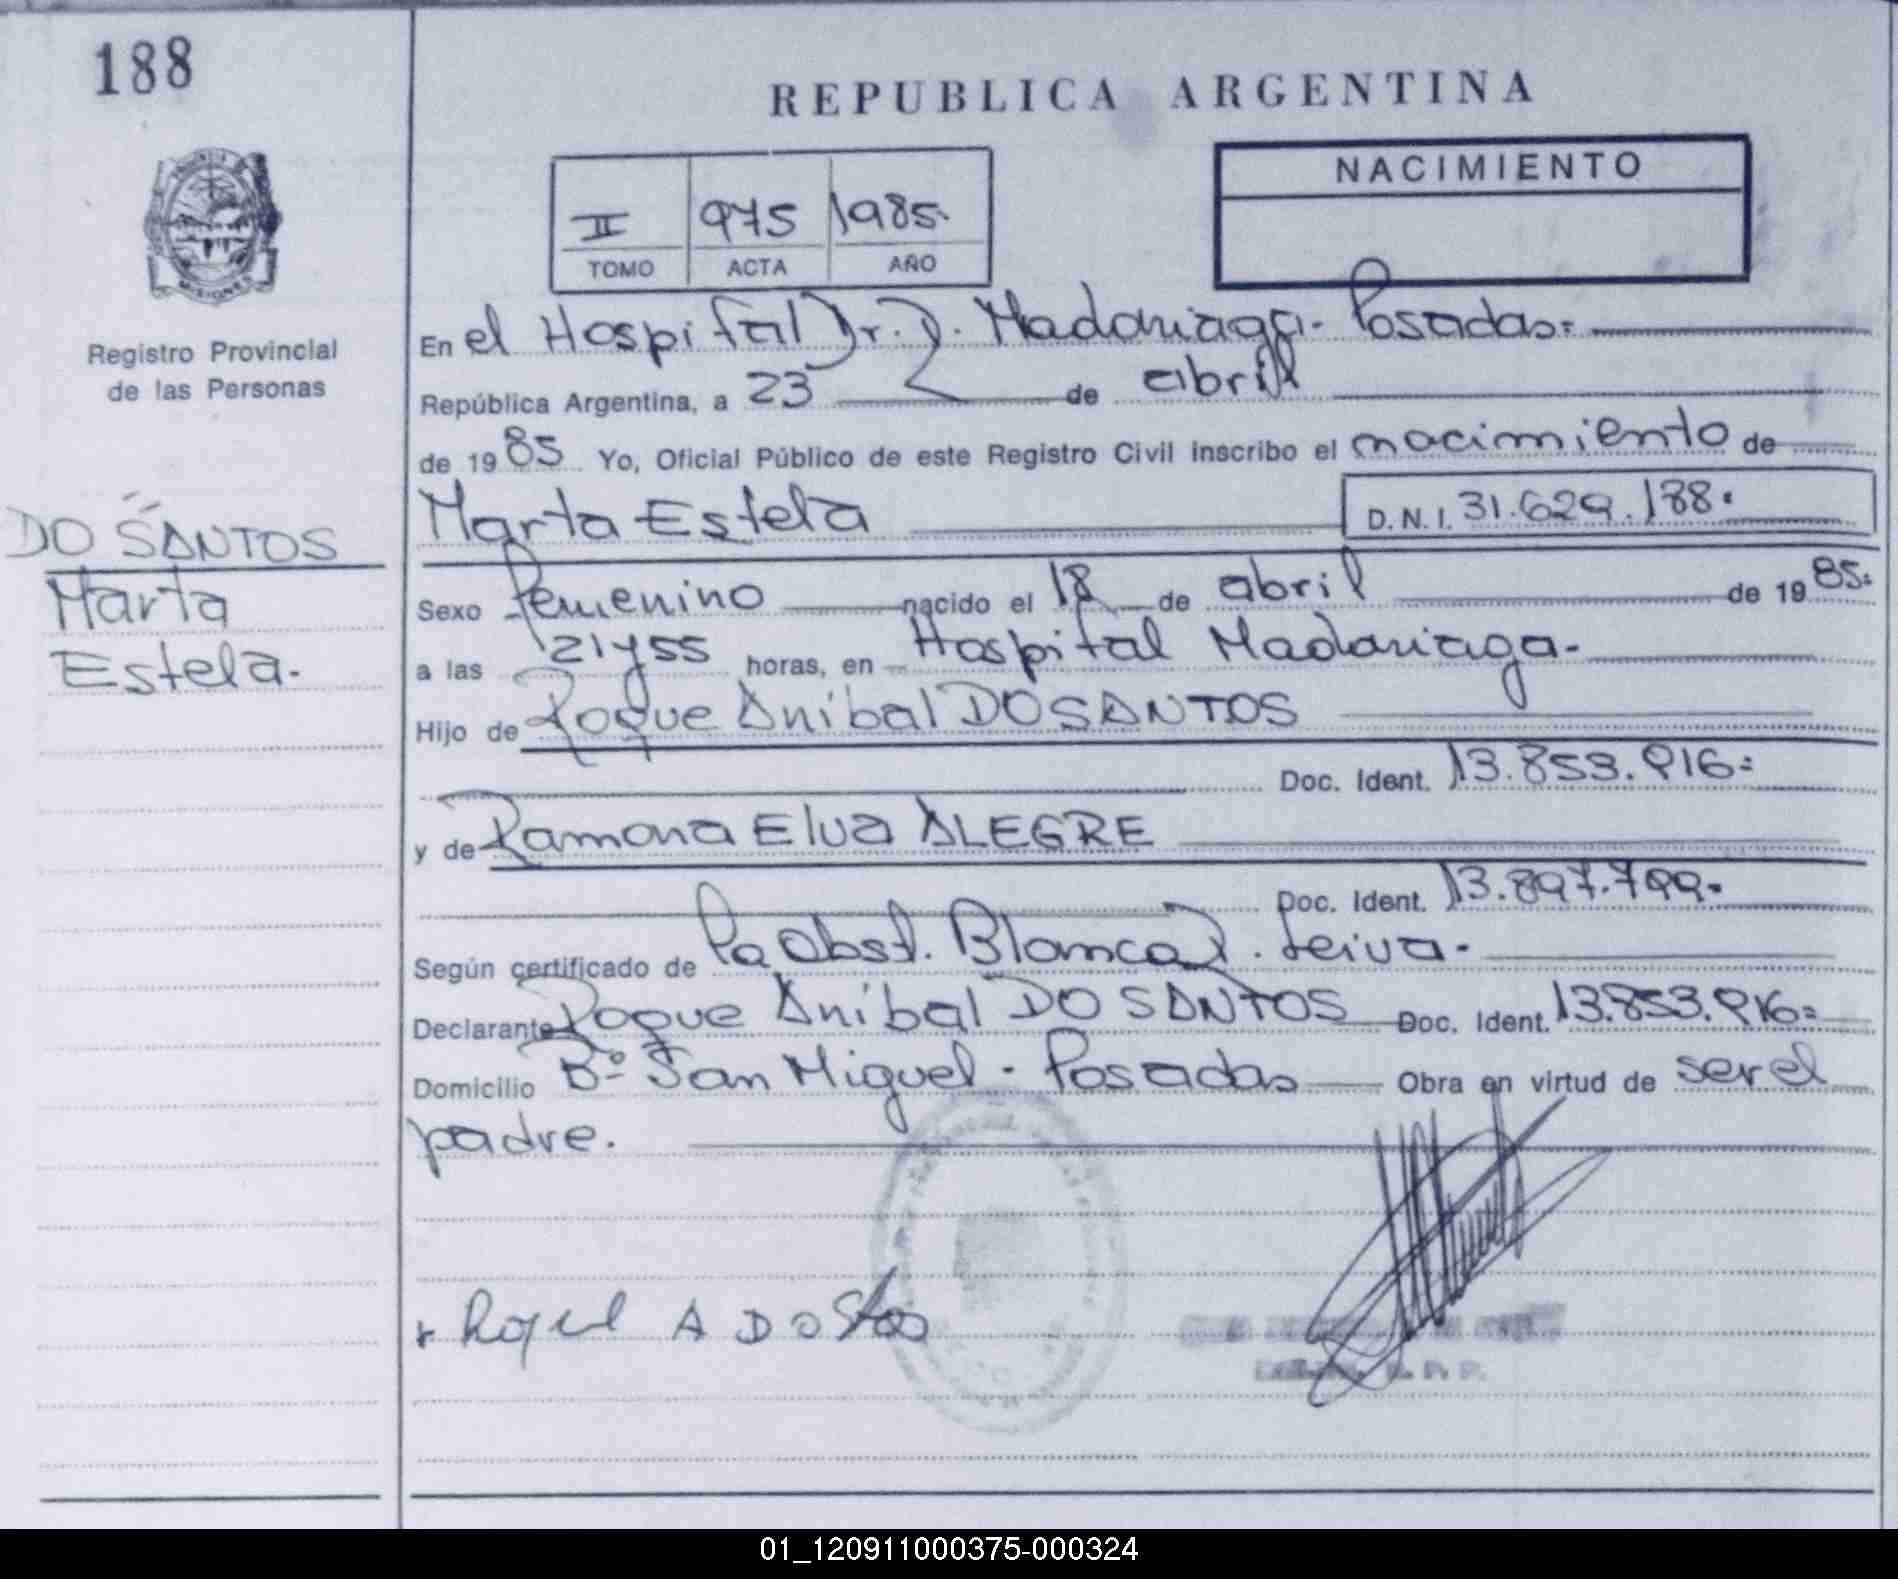 188
REPUBLICA ARGENTINA
NACIMIENTO
II 975 1985.
TOMO ACTA AÑO
MISIONES
Registro Provincial
de las Personas
DO SANTOS
Marta
Estela.
En el Hospital Dr. R. Madariaga - Posadas =
República Argentina, a 23 de abril
de 19 85 Yo, Oficial Público de este Registro Civil inscribo el nacimiento de
Marta Estela D.N.I. 31.629.188.
Sexo femenino nacido el 18 de abril de 19 85=
a las 21 y 55 horas, en Hospital Madariaga -
Hijo de Roque Anibal DO SANTOS
Doc. Ident. 13.853.916=
y de Ramona Elva ALEGRE
Doc. Ident. 13.897.799.
Según certificado de la Obst. Blanca R. Leiva -
Declarante Roque Anibal DO SANTOS Doc. Ident. 13.853.916=
Domicilio Bº San Miguel - Posadas Obra en virtud de ser el
padre.
A DO Stos
01_120911000375-000324